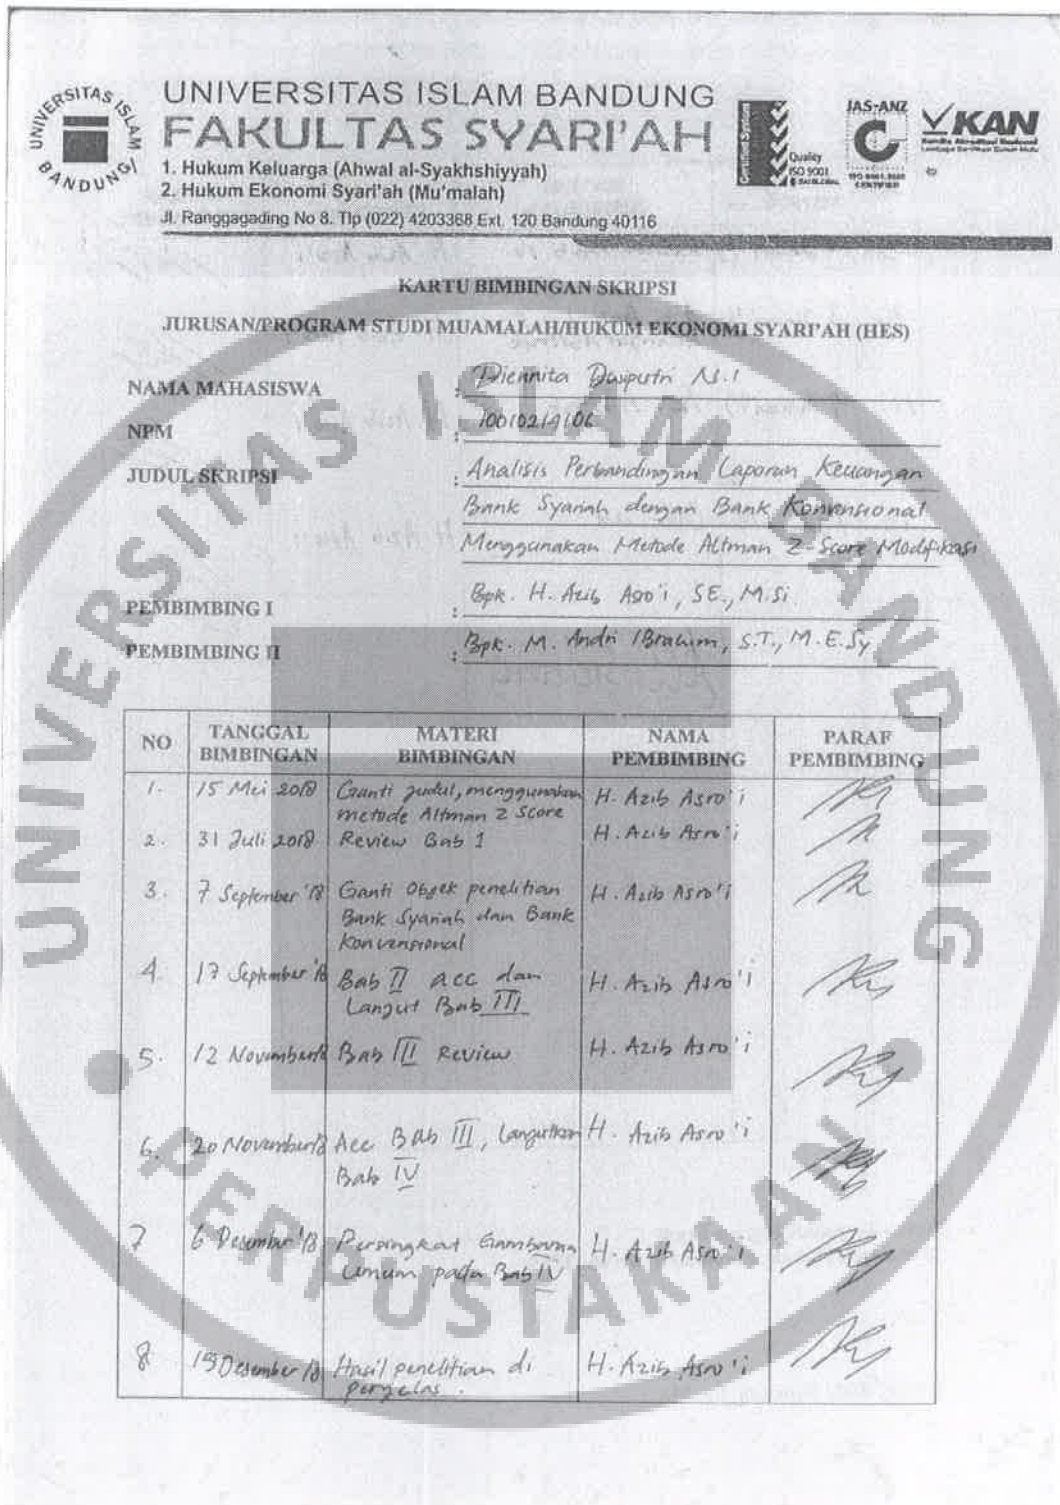 UNIVERSITAS ISLAM BANDUNG
UNIVERSITAS ISLAM BANDUNG
FAKULTAS SYARI'AH
1. Hukum Keluarga (Ahwal al-Syakhshiyyah)
2. Hukum Ekonomi Syari'ah (Mu'malah)
Jl. Ranggagading No 8. Tlp (022) 4203368 Ext. 120 Bandung 40116
Quality
ISO 9001
JAS-ANZ
KAN
KARTU BIMBINGAN SKRIPSI
JURUSAN/PROGRAM STUDI MUAMALAH/HUKUM EKONOMI SYARI'AH (HES)
NAMA MAHASISWA : Diennita Dwiputri N.I
NPM : 10010214106
JUDUL SKRIPSI : Analisis Perbandingan Laporan Keuangan
Bank Syariah dengan Bank Konvensional
Menggunakan Metode Altman Z-Score Modifikasi
PEMBIMBING I : Bpk. H. Azib Asro'i, SE., M.Si
PEMBIMBING II : Bpk. M. Andri IBrahim, S.T., M.E.Sy
NO TANGGAL BIMBINGAN MATERI BIMBINGAN NAMA PEMBIMBING PARAF PEMBIMBING
1. 15 Mei 2018 Ganti judul, menggunakan H. Azib Asro'i
metode Altman Z Score
2. 31 Juli 2018 Review Bab 1 H. Azib Asro'i
3. 7 September '18 Ganti Objek penelitian H. Azib Asro'i
Bank Syariah dan Bank
Konvensional
4. 17 September '18 Bab II acc dan H. Azib Asro'i
Lanjut Bab III
5. 12 November 18 Bab III Review H. Azib Asro'i
6. 20 November 18 Acc Bab III, Lanjutkan H. Azib Asro'i
Bab IV
7 6 Desember '18 Persingkat Gambaran H. Azib Asro'i
Umum pada Bab IV
8 19 Desember 18 Hasil penelitian di H. Azib Asro'i
perjelas.
UNIVERSITAS ISLAM BANDUNG
PERPUSTAKAAN